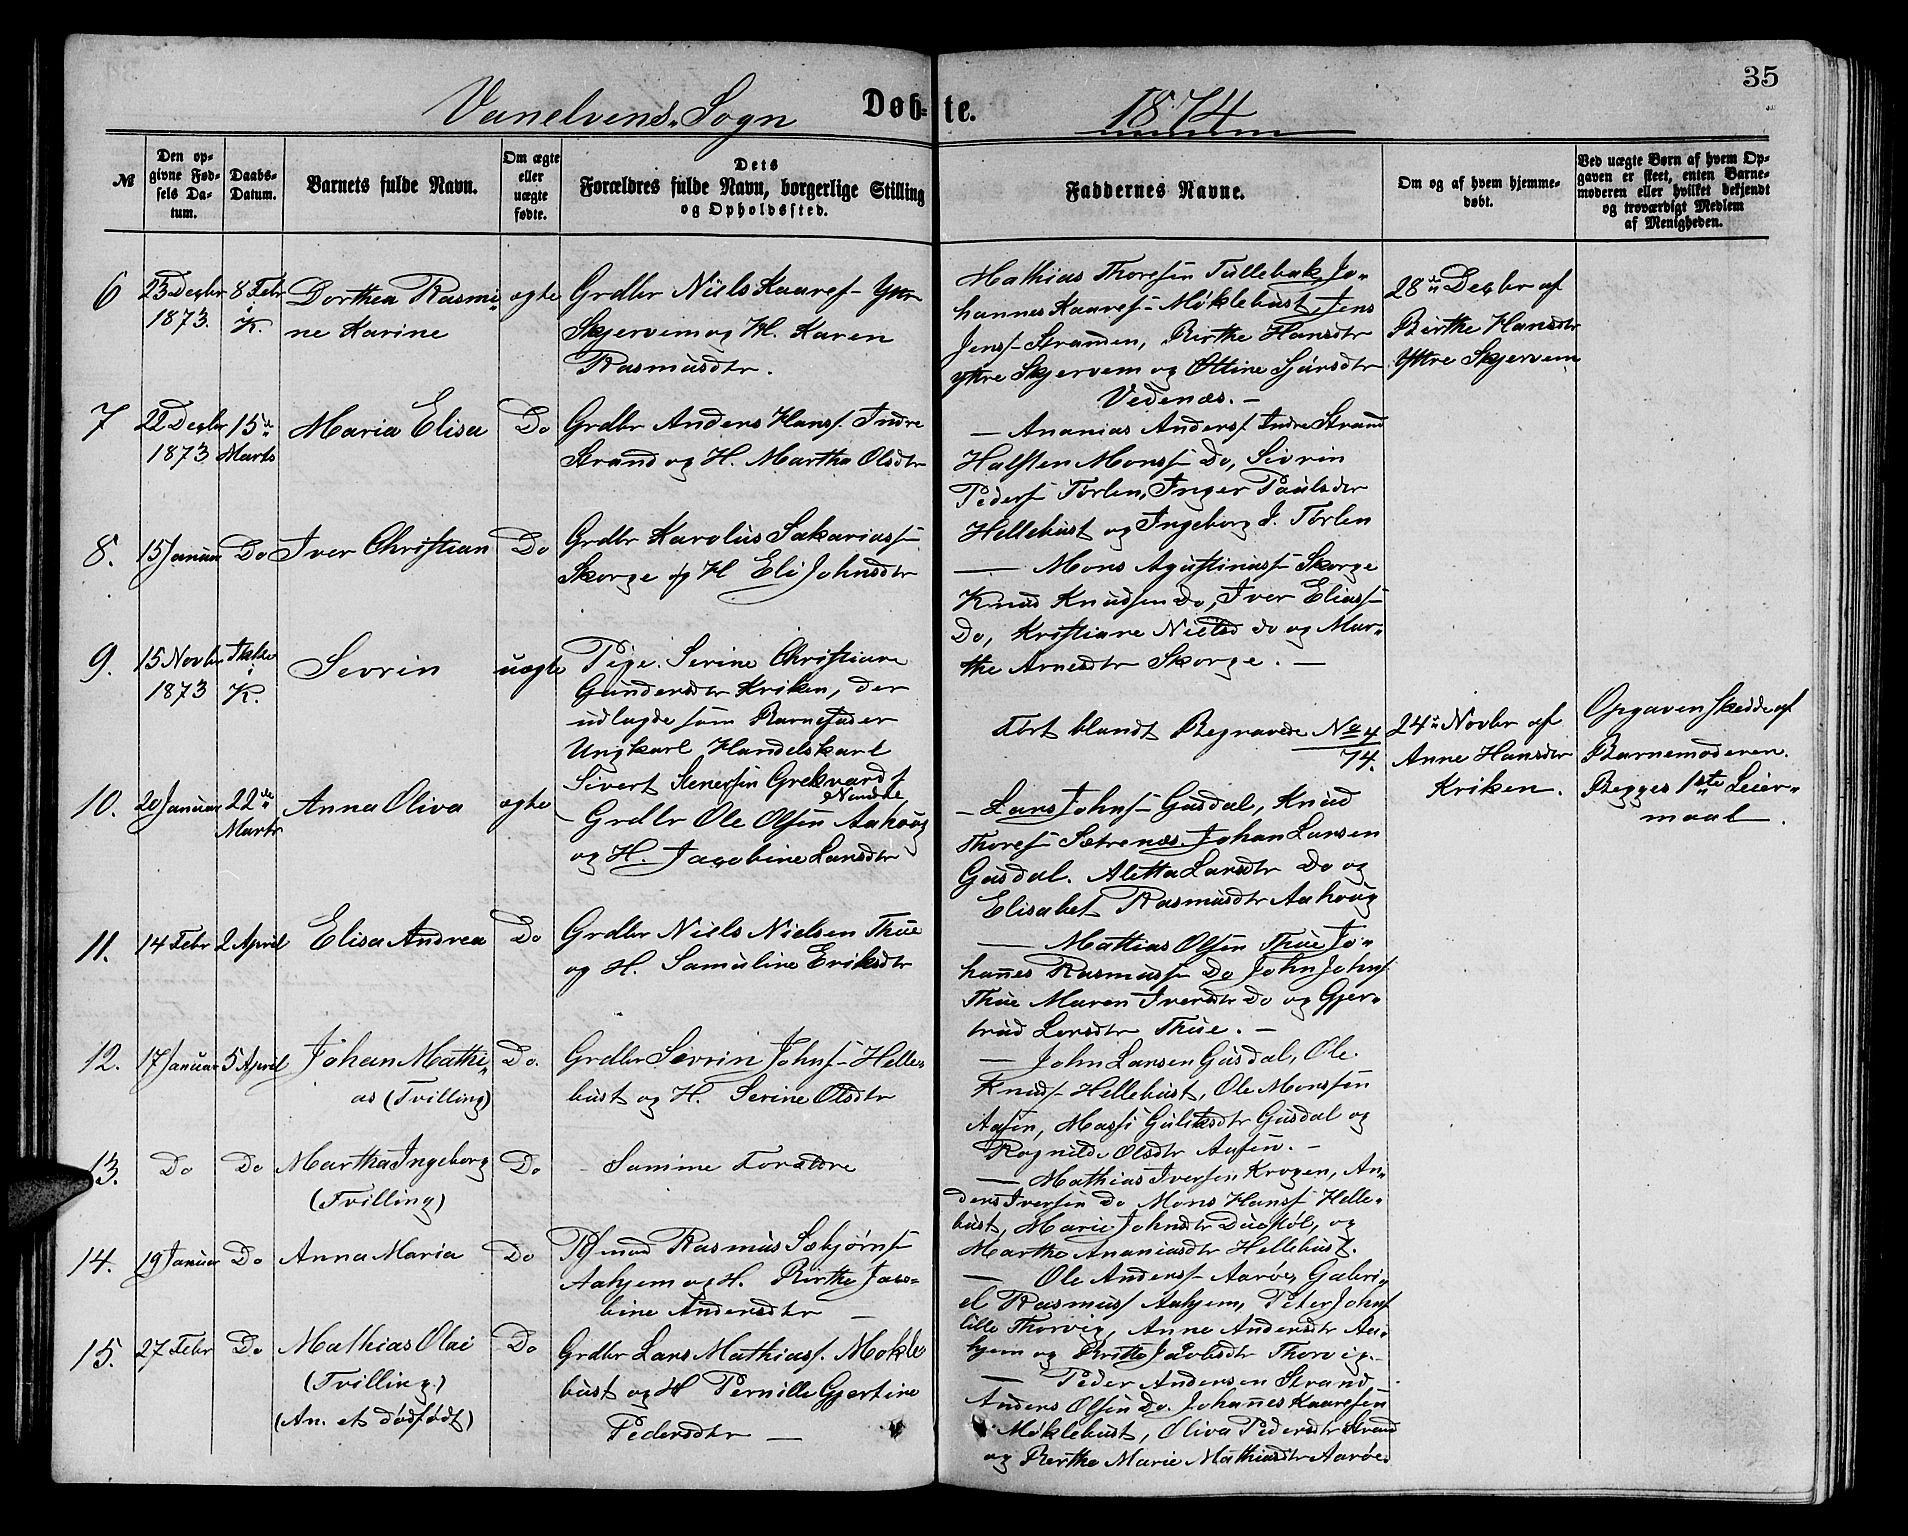 35
Vanelvens Sogn Døbte. 1874
№
Den opgivne Fødsels Datum.
Daabs-Datum.
Barnets fulde Navn.
Om ægte eller uægte fødte.
Dets Forældres fulde Navn, borgerlige Stilling og Opholdssted.
Faddernes Navne.
Om og af hvem hjemmedøbt.
Ved uægte Børn af hvem Opgaven er skeet, enten Barnemoderen eller hvilket bekjendt og troværdigt Medlem af Menigheden.
6
23 Decbr 1873.
8 Febr i K.
Dorthea Rasmine Karine
ægte
Grdbr Niels Kaares. Ytre
Skjervem og H. Karen
Rasmusdtr.
Mathias Thoresen Tullebak, Jo-
hannes Kaares. Møklebust, Jens
Jens. Stranden, Birthe Hansdtr
ytre Skjervem og Ottine Sjursdtr
Vedenæs. -
28de Decbr af
Birthe Hansdtr
Ytre Skjervem
7
22 Decbr 1873
15de Marts
Maria Elisa
Do
Grdbr Anders Hans. Indre
Strand og H. Martha Olsdtr
- Ananias Anders. Indre Strand
Halsten Mons. Do, Sivrin
Peders. Tørlen, Inger Paulsdtr
Hellebust og Ingeborg J. Tørlen
8.
15 Januar
Do
Iver Christian
Do
Grdbr Karolus Sakarias.
Skorge og H Eli Johnsdtr
- Mons Agustinus. Skorge
Knud Knudsen Do, Iver Elias.
Do, Kristiane Nielsd do og Mar-
the Arnesdtr Skorge. -
9.
15 Novbr 1873
Ikke i K.
Sevrin
uægte
Pige. Serine Christiane
Gundersdtr Kriken, der
udlagde som Barnefader
Ungkarl Handelskarl
Sivert Stenersen Grekvard f
Nendre
Ført blandt Begravede No 4
74.
24de Novbr af
Anne Hansdtr
Kriken.
Opgaven skedde af
Barnemoderen.
Begges 1ste Leier-
maal.
10.
20 Januar
22de Marts
Anna Oliva
ægte
Grdbr Ole Olsen Aahoug
og H. Jacobine Larsdtr
- Lars Johns. Gusdal, Knud
Thores. Sætrenæs, Johan Larsen
Gusdal. Aletta Larsdtr Do og
Elisabet Rasmusdtr Aahoug
11.
14 Febr
2 April
Elisa Andrea
Do
Grdbr Niels Nielsen Thue
og H. Samuline Eriksdtr
- Mathias Olsen Thue, Jo-
hannes Rasmus. Do John Johns.
Thue Maren Iversdtr Do og Gjer-
trud Lersdtr Thue. -
12.
17 Januar
5 April
Johan Mathias (Tvilling)
Do.
Grdbr Sevrin Johns. Helle-
bust og H. Serine Olsdtr
- John Larsen Gusdal, Ole
Knuds. Hellebust, Ole Monssen
Aasen, Massi Guliksdtr Gusdal og
Rognilde Olsdtr Aasen. -
13.
Do
Do
Martha Ingeborg
(Tvilling)
Do
Samme Forældre
- Mathias Iversen Krogen, An-
ders Iversen Do Mons Hans. Helle-
bust, Marie Johnsdtr Duestøl, og
Marthe Ananiasdtr Hellebust.
14.
19 Januar
Do
Anna Maria
Do
Rasmus Sebjørns.
Aahjem og H. Birthe Jaco-
bine Andersdtr -
- Ole Anders. Aarøe, Gabri-
el Rasmus. Aahjem, Peter Johns.
lille Thorvig, Anne Andersdtr Aa-
hjem og Britte Jakobsdtr Thorvig. -
15.
27 Febr
Do
Mathias Olai
(Tvilling)
(An. et dødfødt)
Do
Grdbr Lars Mathias. Mokle
bust og H Pernille Gjertine
Pedersdtr -
- Peder Andersen Strand
Anders Olsen Do. Johannes Kaaresen
Møklebust, Oliva Pedersdtr Strand
og Berthe Marie Mathiasdtr Aarøe